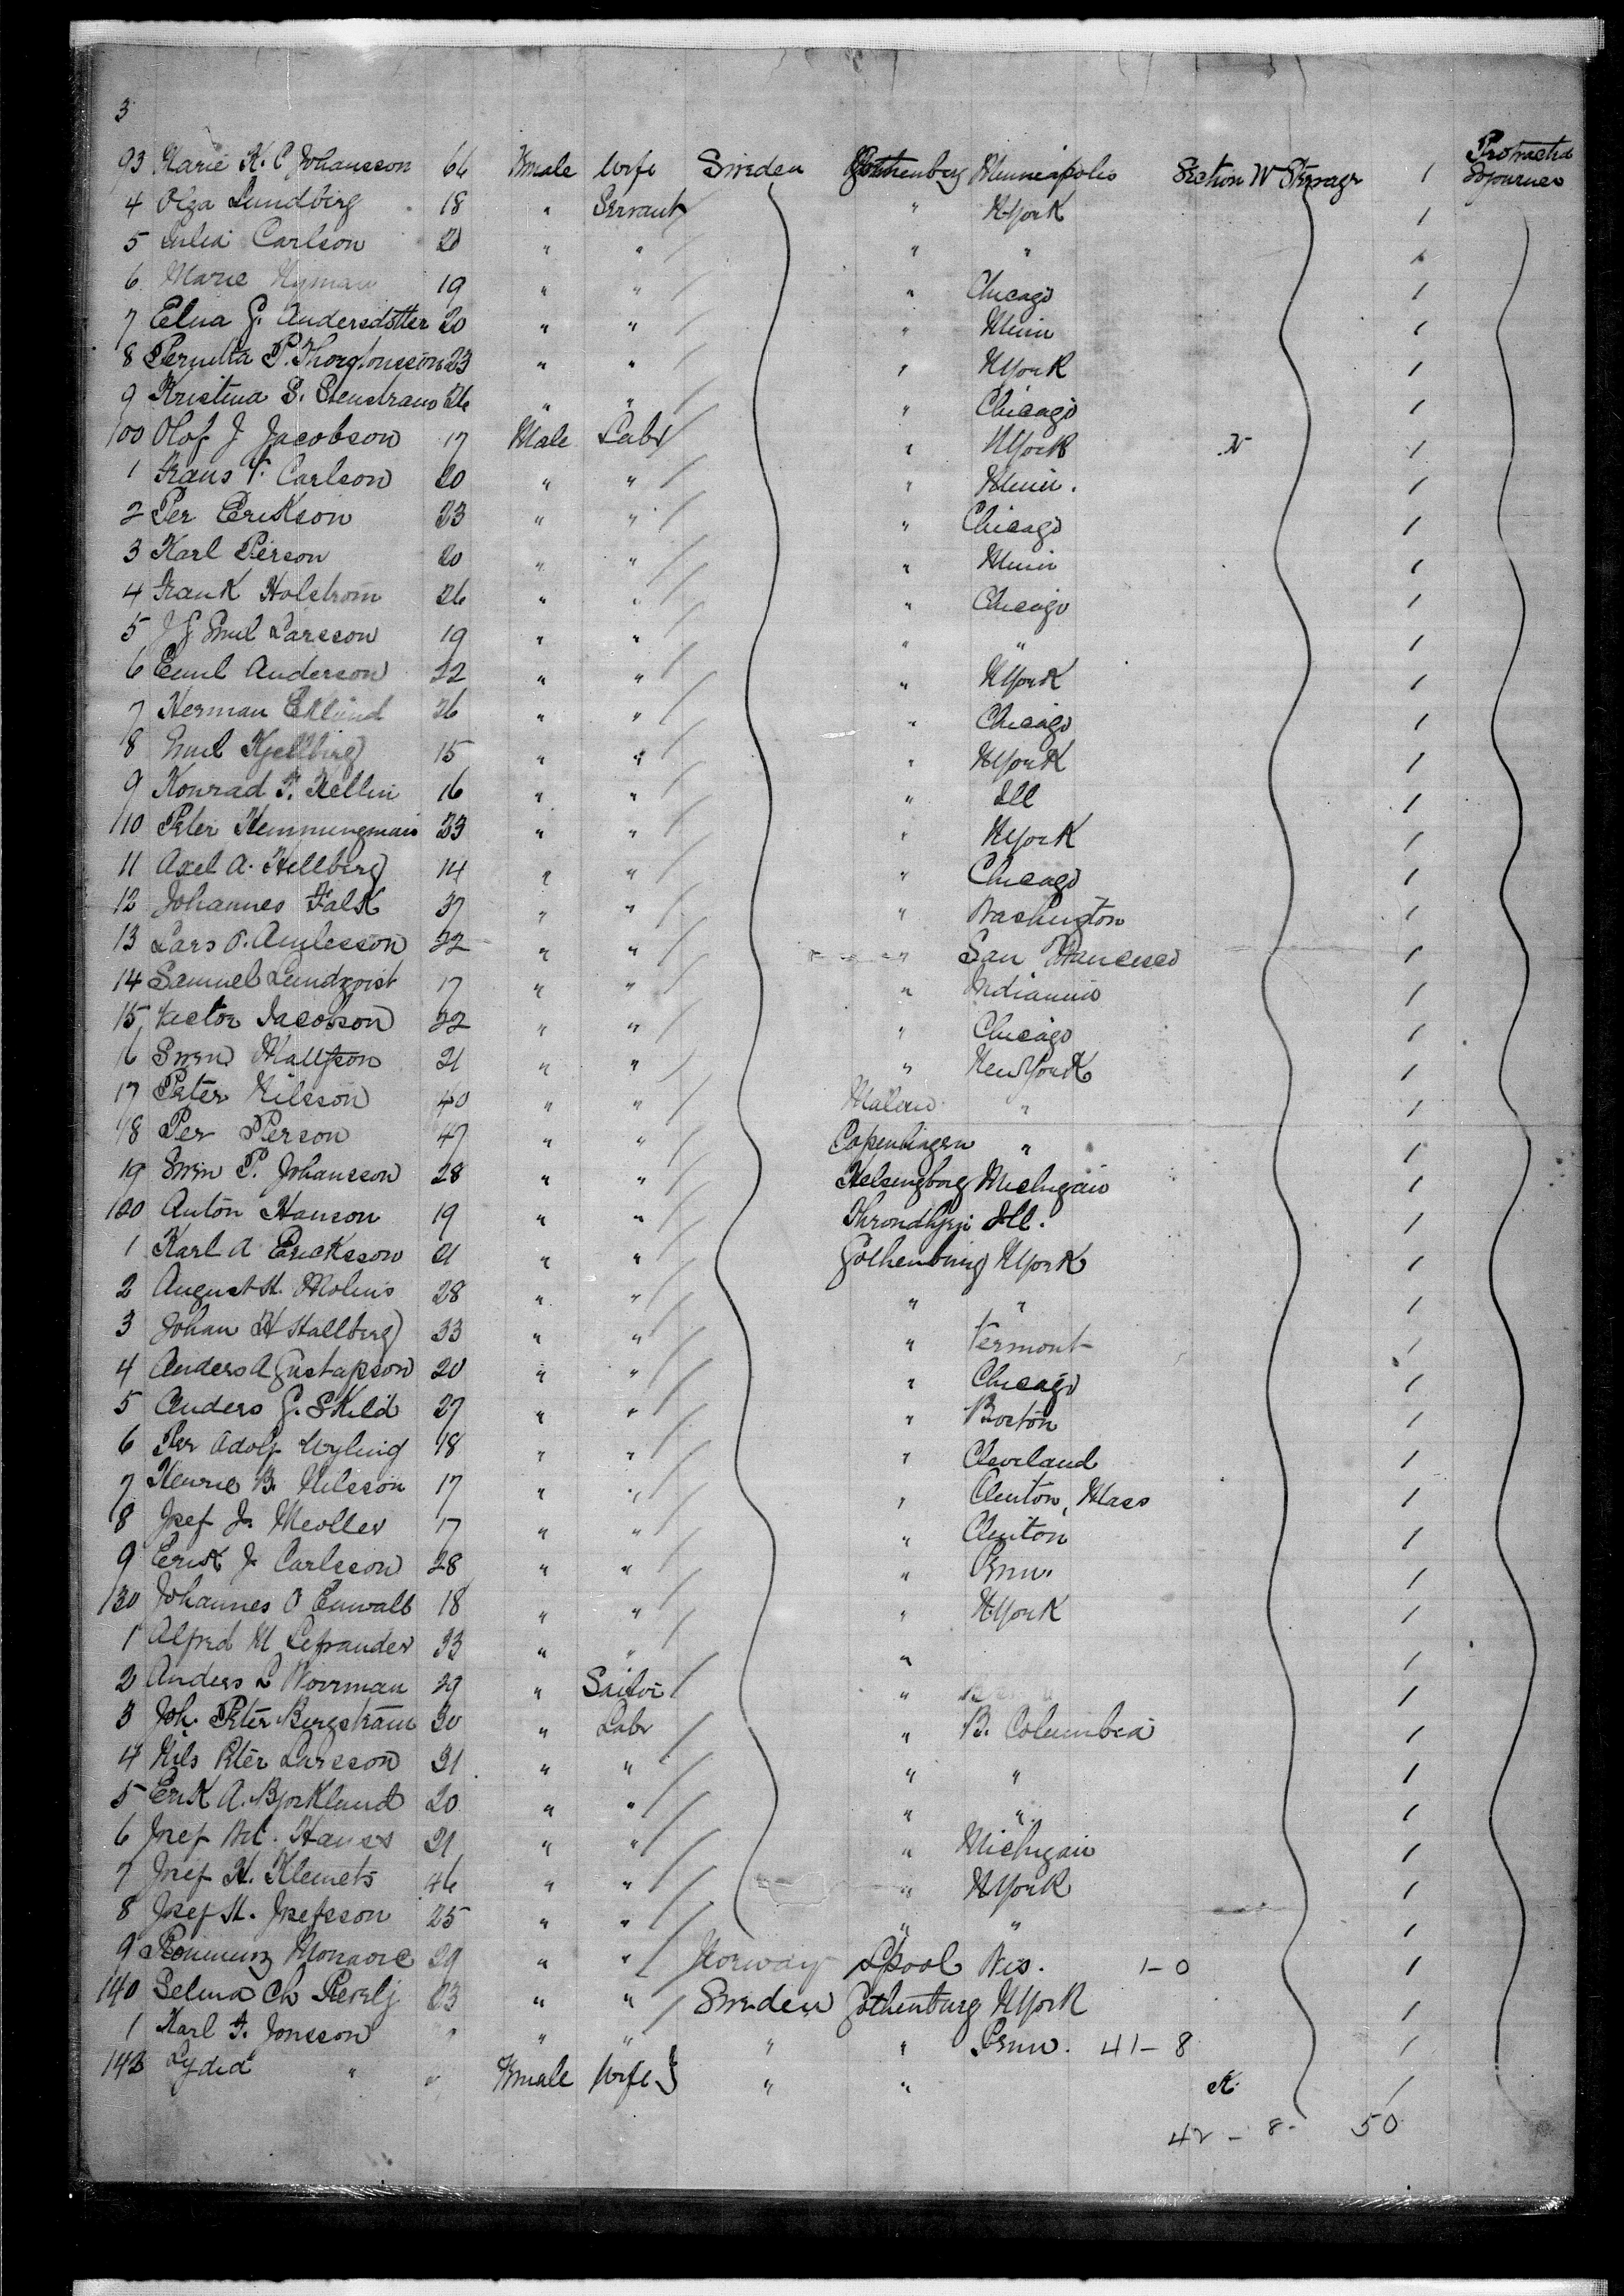 3
Protracted
93 Marie K. C Johansson 66 Female Wife Sweden Gothenberg Minneapolis Section W Sterrage 1 Sojourner
4 Olga Lundberg 18 " Servant " N York 1
5 Julia Carlson 20 " " " " 1
6 Marie Nyman 19 " " " Chicago 1
7 Elna G. Andersdotter 20 " " " Minn 1
8 Pernilla P. 23 " " " N York 1
9 Kristina S. 26 " " " Chicago 1
100 Olof J Jacobson 17 Male Labr " N York N 1
1 Frans V. Carlson 20 " " " Minn. 1
2 Per Erikson 23 " " " Chicago 1
3 Karl Pierson 20 " " " Minn 1
4 Frank Holstrom 26 " " " Chicago 1
5 J G Emil Larsson 19 " " " " 1
6 Emil Anderson 22 " " " N York 1
7 Herman Eklund 26 " " " Chicago 1
8 Emil Kjellberg 15 " " " N York 1
9 Konrad F. Kellin 16 " " " Ill 1
110 Peter 33 " " " N York 1
11 Axel A. Hellberg 14 " " " Chicago 1
12 Johannes Falk 37 " " " Washington 1
13 Lars P. 22 " " " San Francisco 1
14 Samuel Lundqvist 17 " " " 1
15 Victor Jacobson 22 " " " Chicago 1
16 Swen 21 " " " New York 1
17 Peter Nilsson 40 " " " 1
18 Per Pierson 47 " " Copenhagen " 1
19 Swen P. Johansson 28 " " Helsingborg Michigan 1
120 Anton Hanson 19 " " Ill. 1
1 Karl A Ericksson 21 " " Gothenburg N York 1
2 August H. Molins 28 " " " " 1
3 Johan H Hallberg 33 " " " Vermont 1
4 Anders A Gustafson 20 " " " Chicago 1
5 Anders G. Skild 27 " " " Boston 1
6 Per Adolf 18 " " " Cleveland 1
7 Henric B. Nilsson 17 " " " Clinton, Mass 1
8 Josef J. Meoller 17 " " " Clinton 1
9 Erik J. Carlsson 28 " " " Penn. 1
130 Johannes O Enwall 18 " " " N. York 1
1 Alfred M 33 " " " 1
2 Anders L Norrman 29 " Sailor " 1
3 Joh. Peter Bergstrom 30 " Labr " B. Columbia 1
4 Nils Peter Larsson 31 " " " " 1
5 Erik A. Bjorklund 20 " " " " 1
6 Josef 21 " " " Michigan 1
7 Josef H. Klemets 46 " " " N York 1
8 Josef H. Josefsson 25 " " " " 1
9 29 " " Norway Lpool Wis. 1-0 1
140 Selma Ch 23 " " Sweden Gothenburg N York 1
1 Karl F. Jonsson " " " " " Penn. 41-8 1
142 Lydia " " Female Wife } " " 1
42 - 8- 50